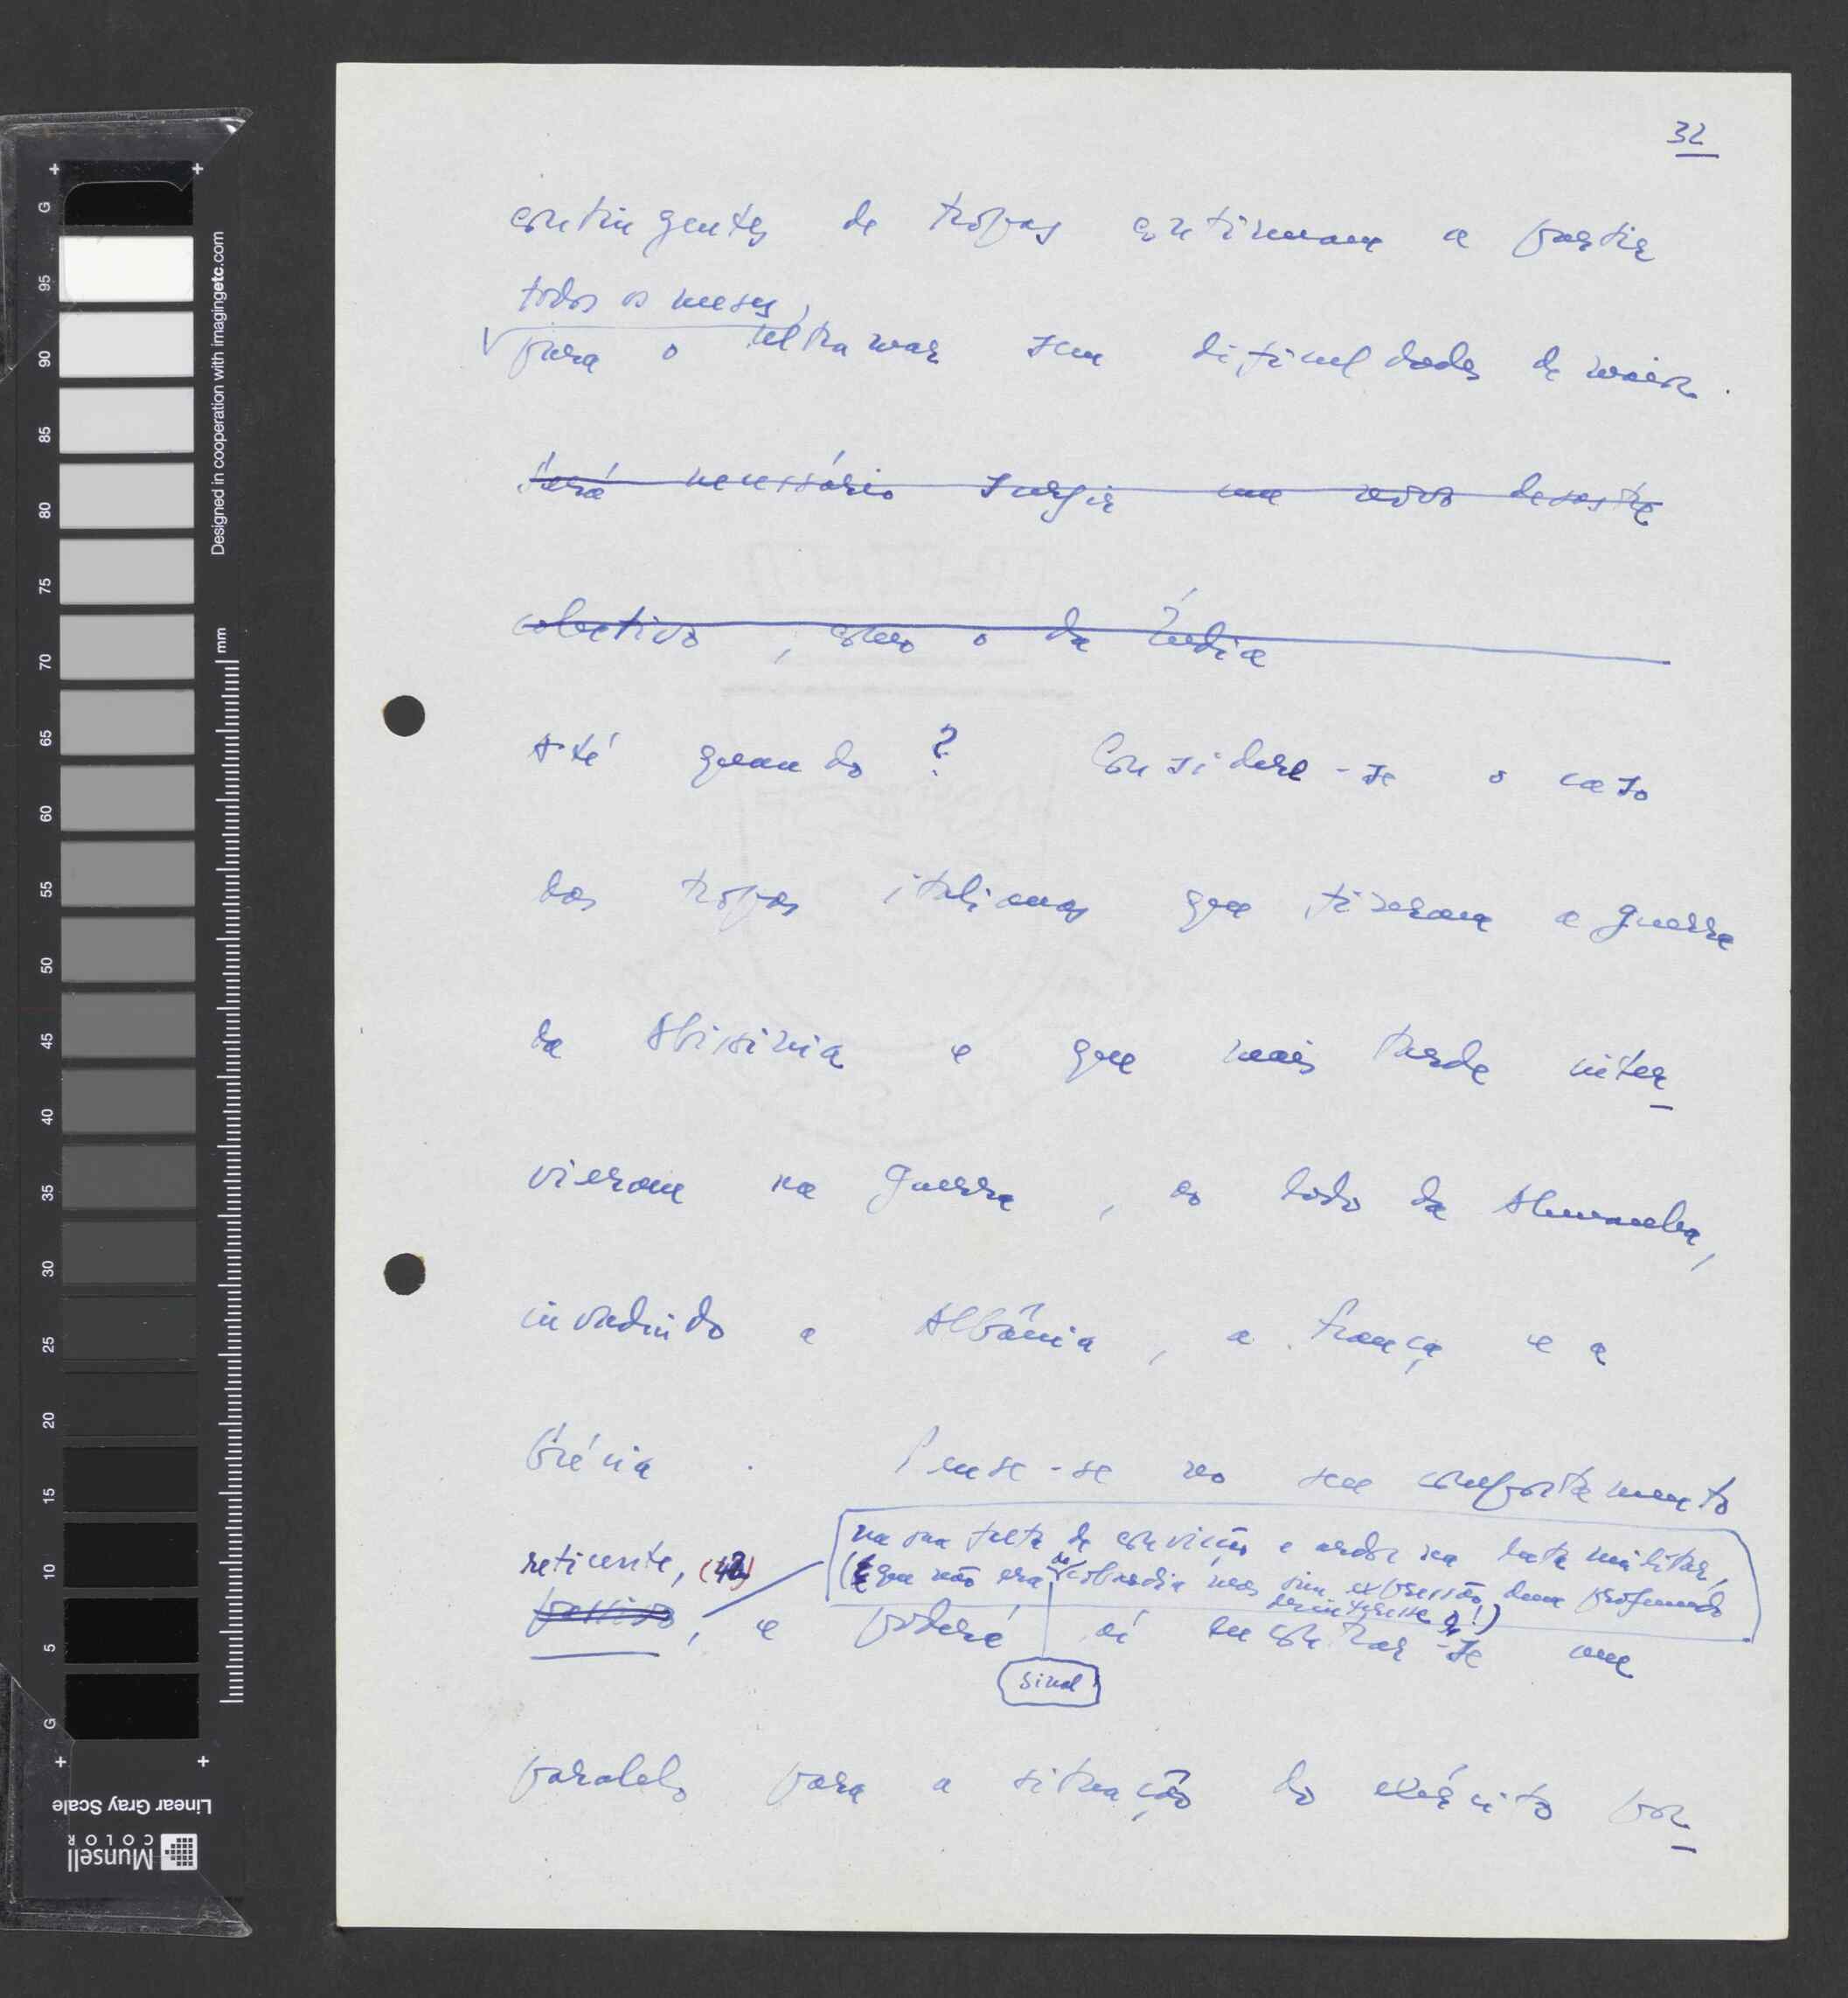 32
contingentes de tropas continuam a partir
todos os meses,
para o ultramar sem dificuldades de maior.
Será necessário surgir um novo desastre
colectivo, como o da Índia
Até quando? Considere-se o caso
das tropas italianas que fizeram a guerra
da Abissinia e que mais tarde inter
vieram na guerra, ao lado da Alemanha,
invadindo a Albânia, a França e a
Grécia. Pense-se no seu comportamento
na sua falta de convicção e ardor na luta militar,
reticente, (42)
(que não era de cobardia mas sim expressão dum profundo
desinteresse!)
passivo, e poderá aí encontrar-se um
sinal
paralelo para a situação do exército por
G
95
90
85
80
75
70
65
60
55
50
45
40
35
30
25
20
15
10
5
G
mm
Designed in cooperation with imagingetc.com
Linear Gray Scale
Munsell
COLOR